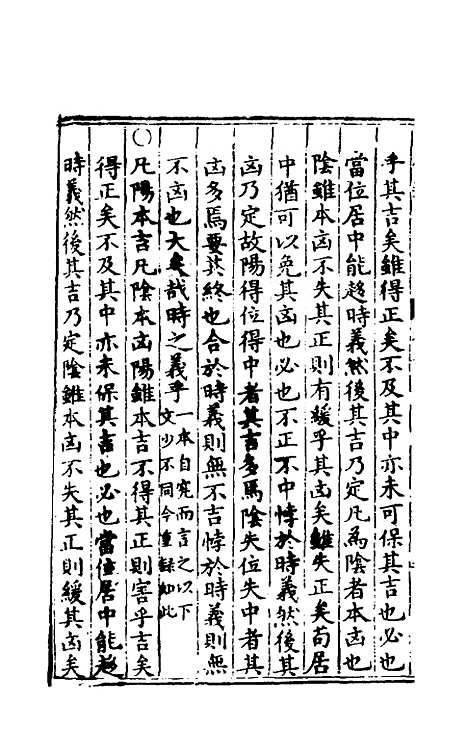 乎其吉矣雖得正矣不及其中亦未可保其吉也必也
當位居中能趍時義然後其吉乃定凡爲陰者本凶也
陰雖本凶不失其正則有緩乎其凶矣雖失正矣苟居
中猶可以免其凶也必也不正不中悖於時義然後其
凶乃定故陽得位得中者其吉多焉陰失位失中者其
凶多焉要其終也合於時義則無不吉悖於時義則無
不凶也大矣哉時之義乎一本自寃而言之以下
文少不同今重録如此
○凡陽本吉凡陰本凶陽雖本吉不得其正則害乎吉矣
得正矣不及其中亦未保其吉也必也當位居中能趍
時義然後其吉乃定陰雖本凶不失其正則緩其凶矣